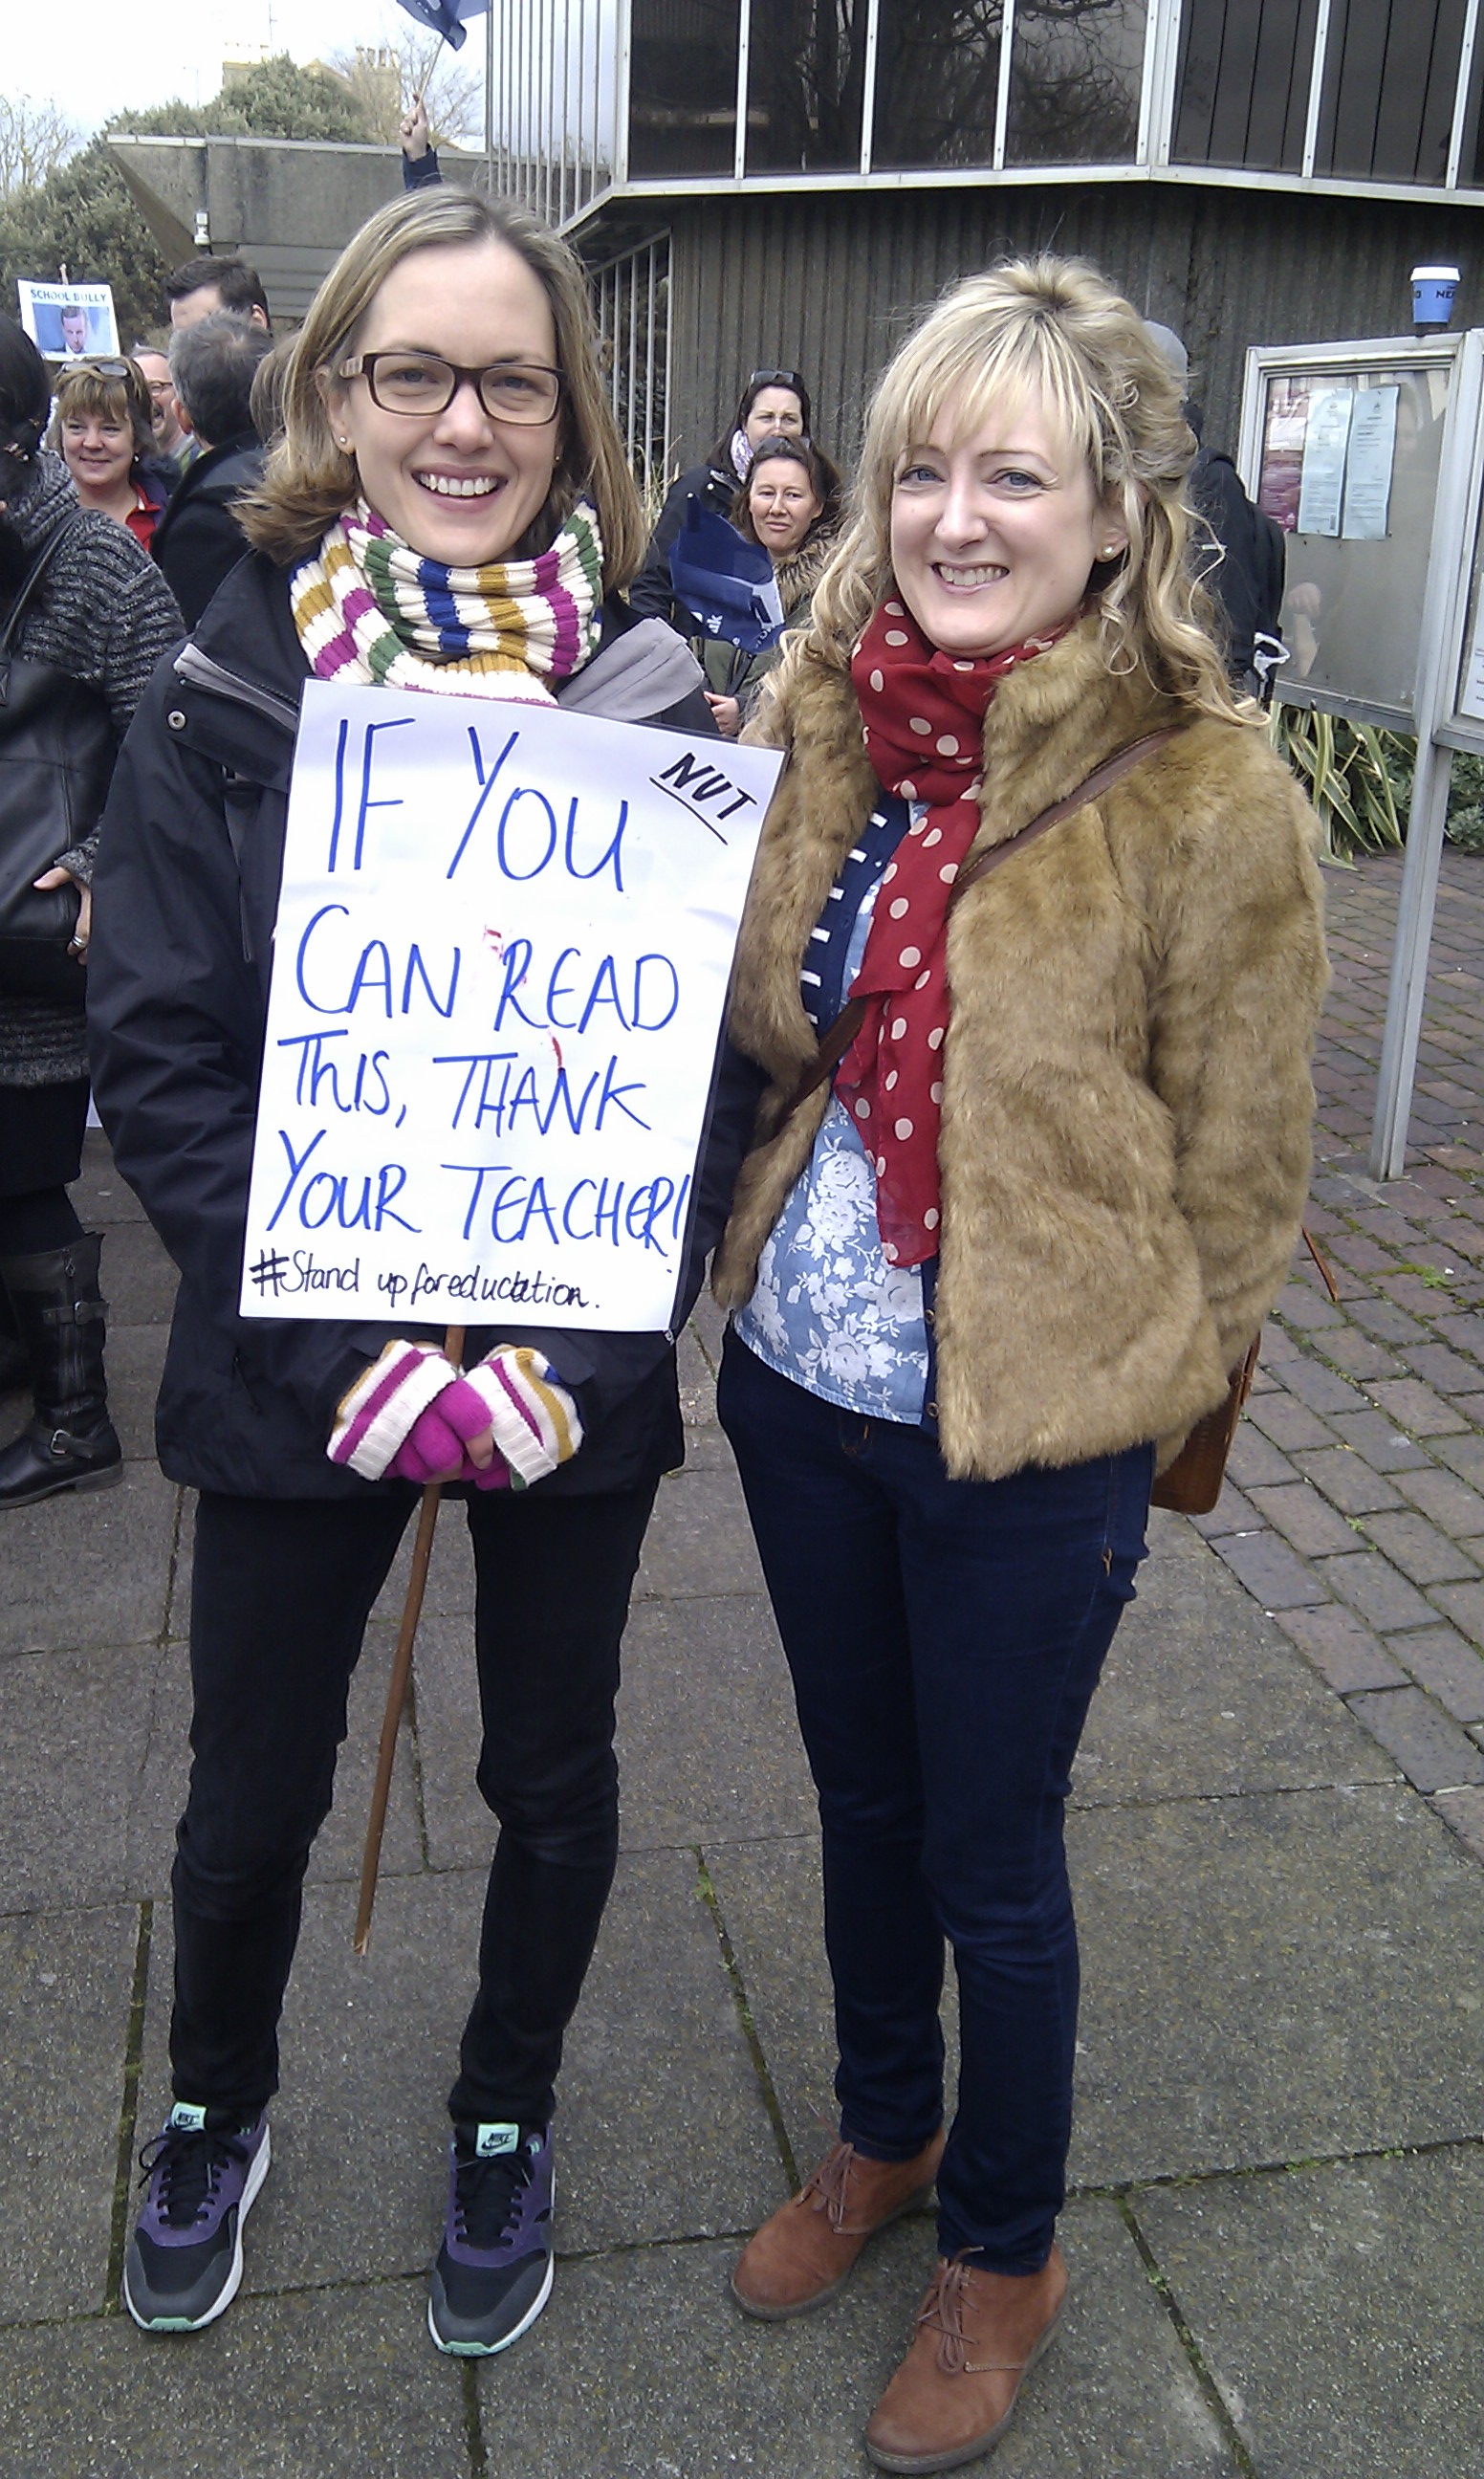 SCHOOL BULLY
NUT
IF YOU
CAN READ
THIS, THANK
YOUR TEACHER!
#Stand up for education.
NIKE
NIKE